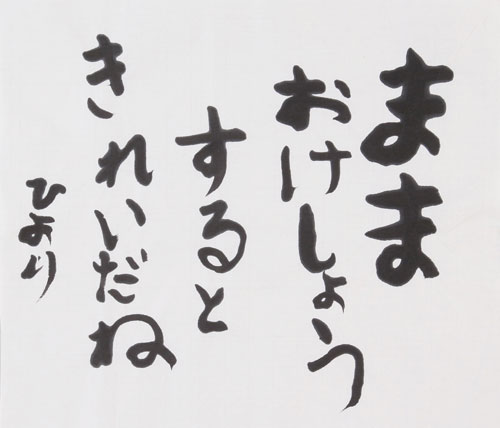 まま
おけしょう
すると
きれいだね
ひより